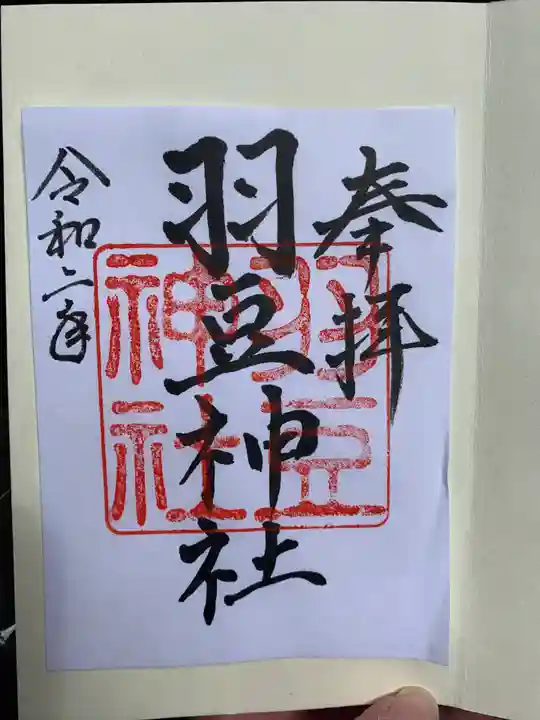 奉拝
羽豆神社
羽豆
神社
令和二年